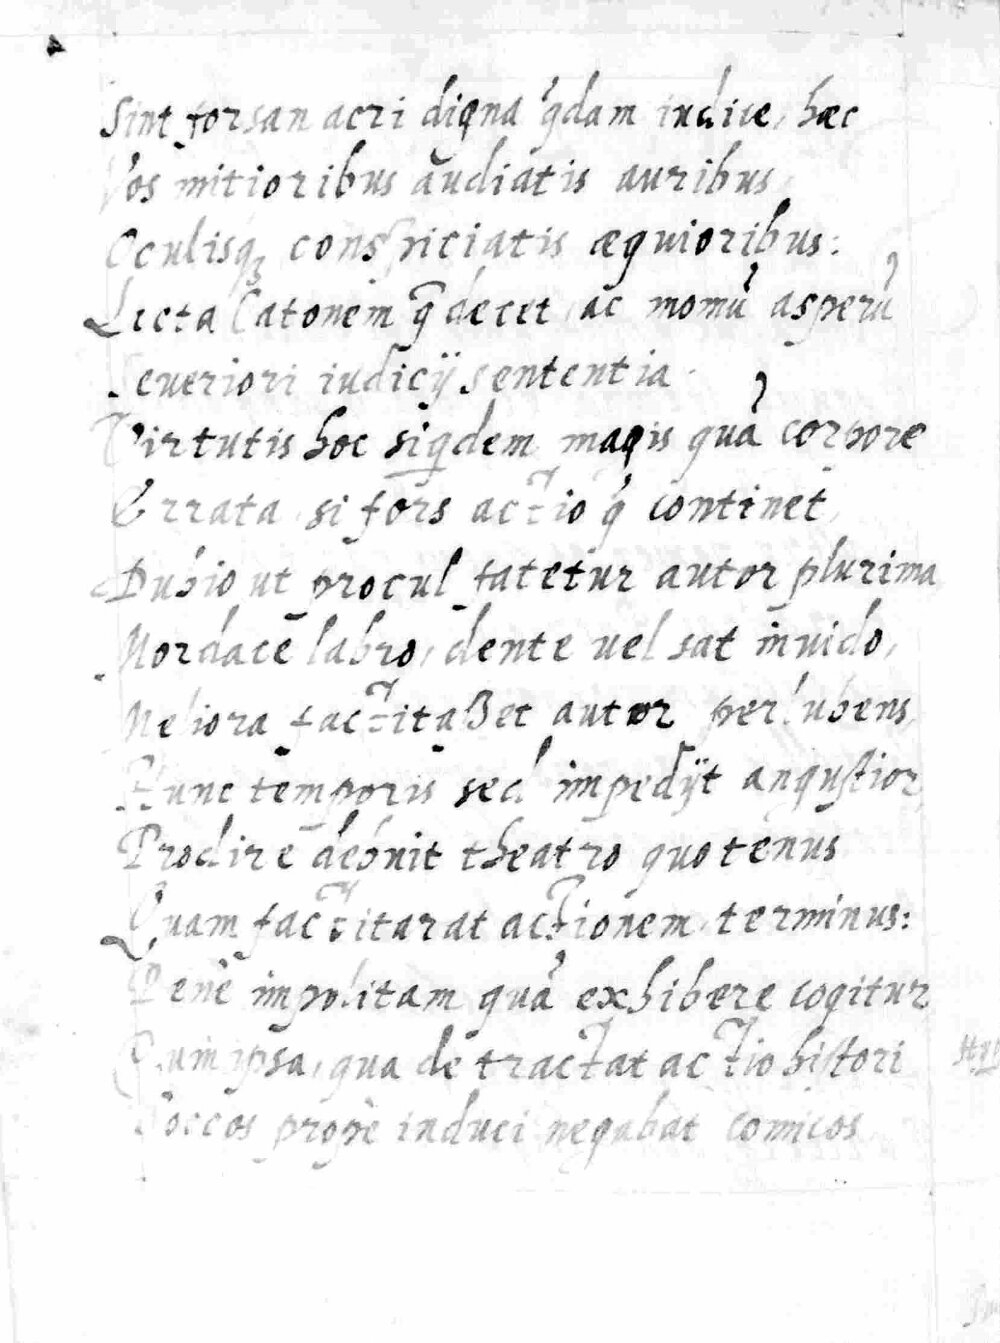 Sint forsan acri digna q̓dam iudice, hæc
Vos mitioribus audiatis auribus,
Oculisq; conspiciatis æquioribus:
Lecta Catonem q̃ decet, ac momũ asperũ
Seueriori iudicij sententia.
Virtutis hoc siq̢dem magis quã corpore
Errata si fors actio q̓ continet,
Dubio ut procul fatetur autor plurima
Mordace labro, dente uel sat inuido,
Meliora factitaßet autor perlubens,
Hunc temporis sed impedijt angustior,
Prodire debuit theatro quo tenus
Quam factitarat actionem, terminus:
Penè impolitam quã exhibere cogitur
Cum ipsa, qua de tractat actio histori
Soccos propè induci negabat comicos